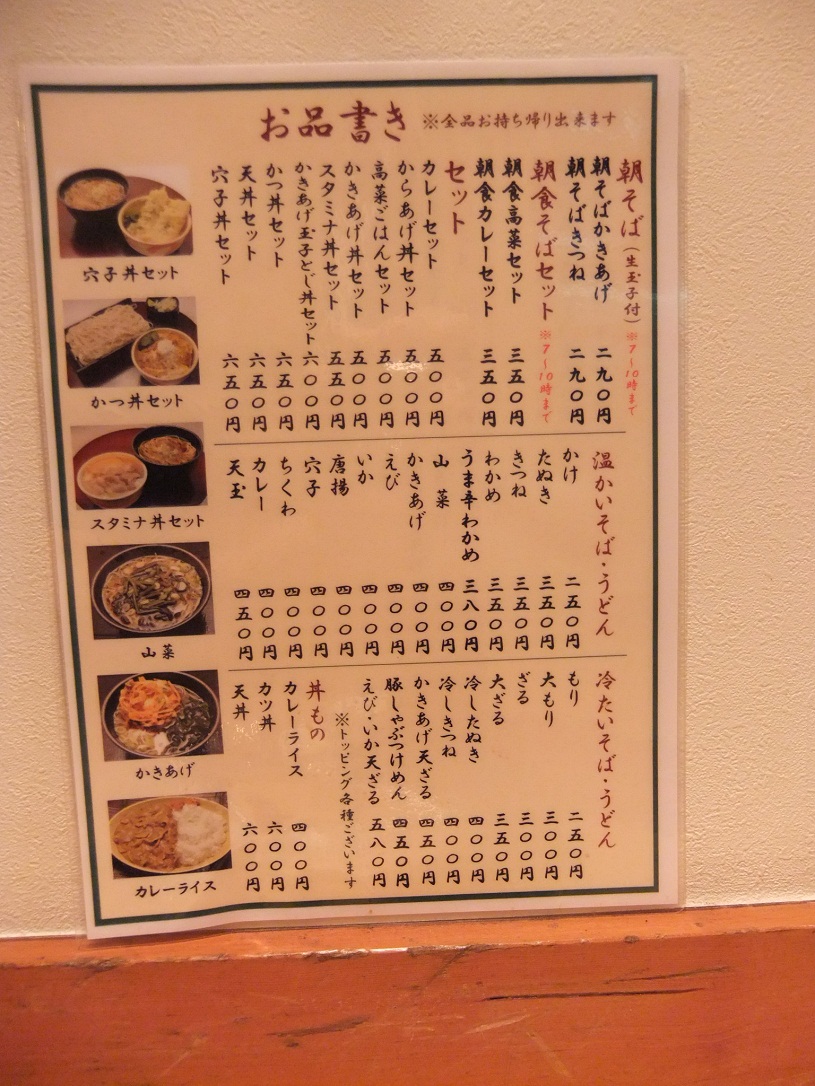 お品書き ※全品お持ち帰り出来ます
朝そば(生玉子付)※7〜10時まで
朝そばかきあげ 二九〇円
朝そばきつね 二九〇円
朝食そばセット ※7〜10時まで
朝食高菜セット 三五〇円
朝食カレーセット 三五〇円
セット
カレーセット 五〇〇円
からあげ丼セット 五〇〇円
高菜ごはんセット 五〇〇円
かきあげ丼セット 五〇〇円
スタミナ丼セット 五五〇円
かきあげ玉子とじ丼セット 六〇〇円
かつ丼セット 六五〇円
天丼セット 六五〇円
穴子丼セット 六五〇円
温かいそば・うどん
かけ 二五〇円
たぬき 三五〇円
きつね 三五〇円
わかめ 三五〇円
うま辛わかめ 三八〇円
山菜 四〇〇円
かきあげ 四〇〇円
えび 四〇〇円
いか 四〇〇円
唐揚 四〇〇円
穴子 四〇〇円
ちくわ 四〇〇円
カレー 四〇〇円
天玉 四五〇円
冷たいそば・うどん
もり 二五〇円
大もり 三〇〇円
ざる 三〇〇円
大ざる 三五〇円
冷したぬき 四〇〇円
冷しきつね 四〇〇円
かきあげ天ざる 四五〇円
豚しゃぶつけめん 四五〇円
えび・いか天ざる 五八〇円
※トッピング各種ございます
丼もの
カレーライス 四〇〇円
カツ丼 六〇〇円
天丼 六〇〇円
穴子丼セット
かつ丼セット
スタミナ丼セット
山菜
かきあげ
カレーライス